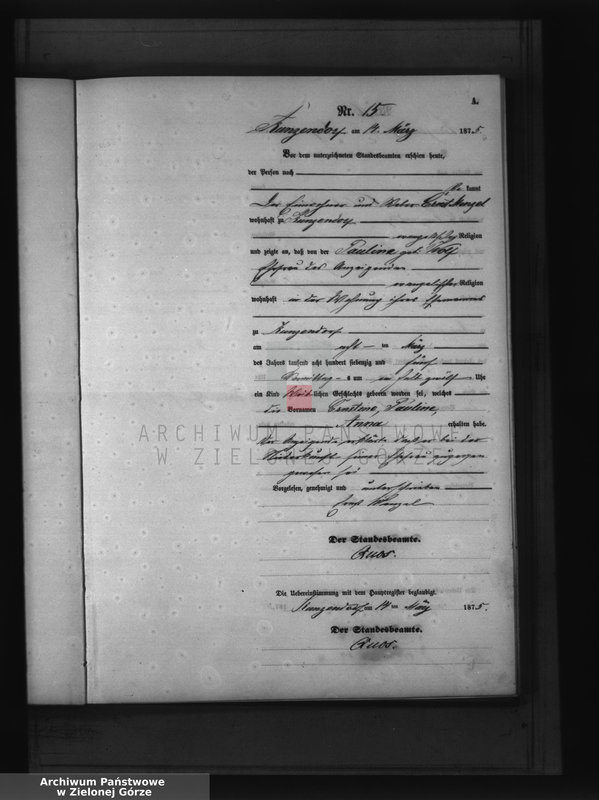 A.
Nr. 15
Kunzendorf am 14. März 1875.
Vor dem unterzeichneten Standesbeamten erschien heute,
der Person nach
be kannt
Der Einwohner und Weber Ernst Menzel
wohnhaft zu Kunzendorf
evangelischer Religion
und zeigte an, daß von der Pauline geb.
Ehefrau des Anzeigenden
evangelischer Religion
wohnhaft in der Wohnung ihres Ehemannes
zu Kunzendorf
am acht ten März
des Jahres tausend acht hundert siebenzig und fünf
Vormittag s um halb zwölf Uhr
ein Kind weib lichen Geschlechts geboren worden sei, welches
die Vornamen Ernstine, Pauline,
Anna erhalten habe.
Der Anzeigende erklärte daß er bei der
Niederkunft seiner Ehefrau zugegen
gewesen sei
Vorgelesen, genehmigt und unterschrieben
Ernst Menzel
Der Standesbeamte.
Die Uebereinstimmung mit dem Hauptregister beglaubigt.
Kunzendorf am 14 ten März 1875.
Der Standesbeamte.
ARCHIWUM PAŃSTWOWE
W ZIELONEJ GÓRZE
Archiwum Państwowe
w Zielonej Górze